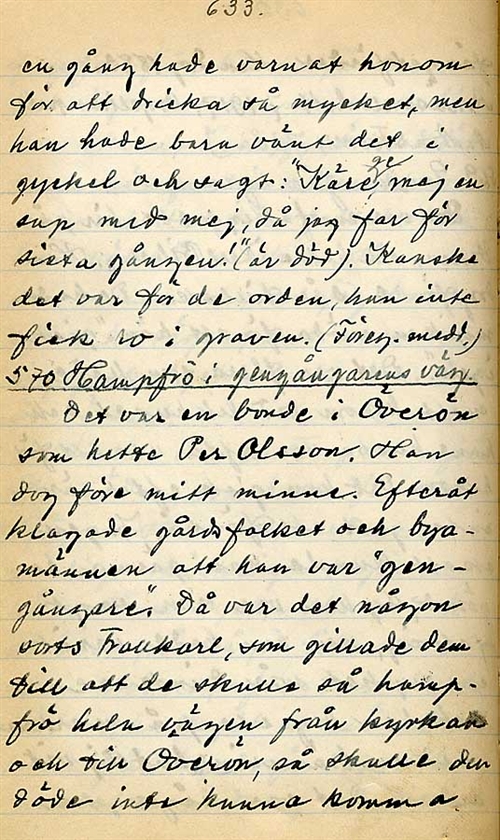 633.
en gång hade varnat honom
för att dricka så mycket, men
han hade bara vänt det i
gyckel och sagt: "Käre, ge mej en
sup med mej, då jag far för
sista gången!" (är död). Kanske
det var för de orden, han inte
fick ro i graven. (Föreg. medd.)
570 Hampfrö i gengångarens väg.
Det var en bonde i Överön
som hette Per Olsson. Han
dog före mitt minne. Efteråt
klagade gårdsfolket och bya-
männen att han var "gen-
gångare". Då var det någon
sorts Trollkarl, som gillade dem
till att de skulle så hamp-
frö hela vägen från kyrkan
och till Överön, så skulle den
döde inte kunna komma